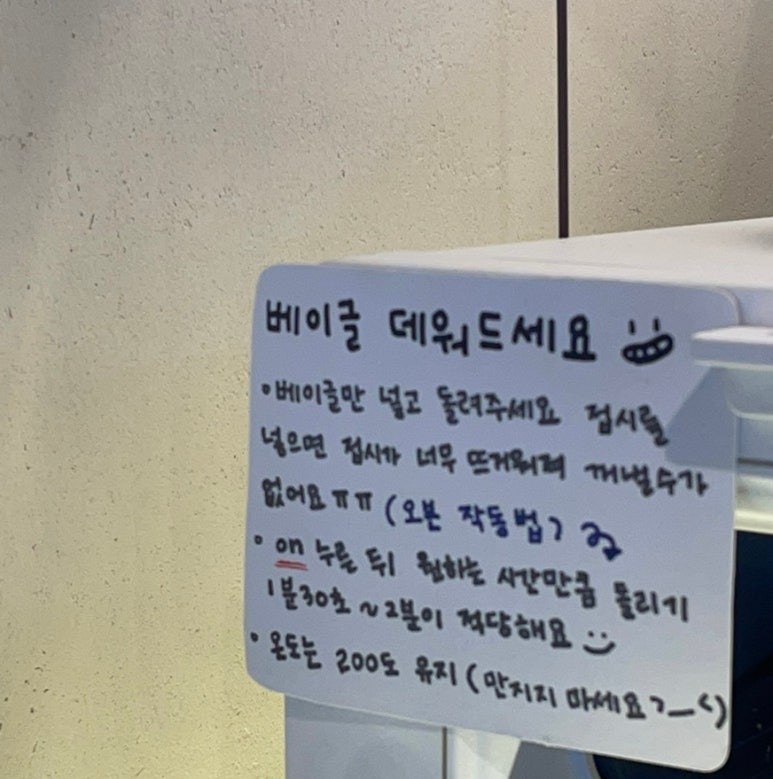 베이글 데워드세요
•베이글만 넣고 돌려주세요 접시를
넣으면 접시가 너무 뜨거워져 꺼낼수가
없어요 ㅠㅠ (오븐 작동법)
• on 누른 뒤 원하는 시간만큼 돌리기
1분30초 ~ 2분이 적당해요 :)
• 온도는 200도 유지 (만지지 마세요 >_<)